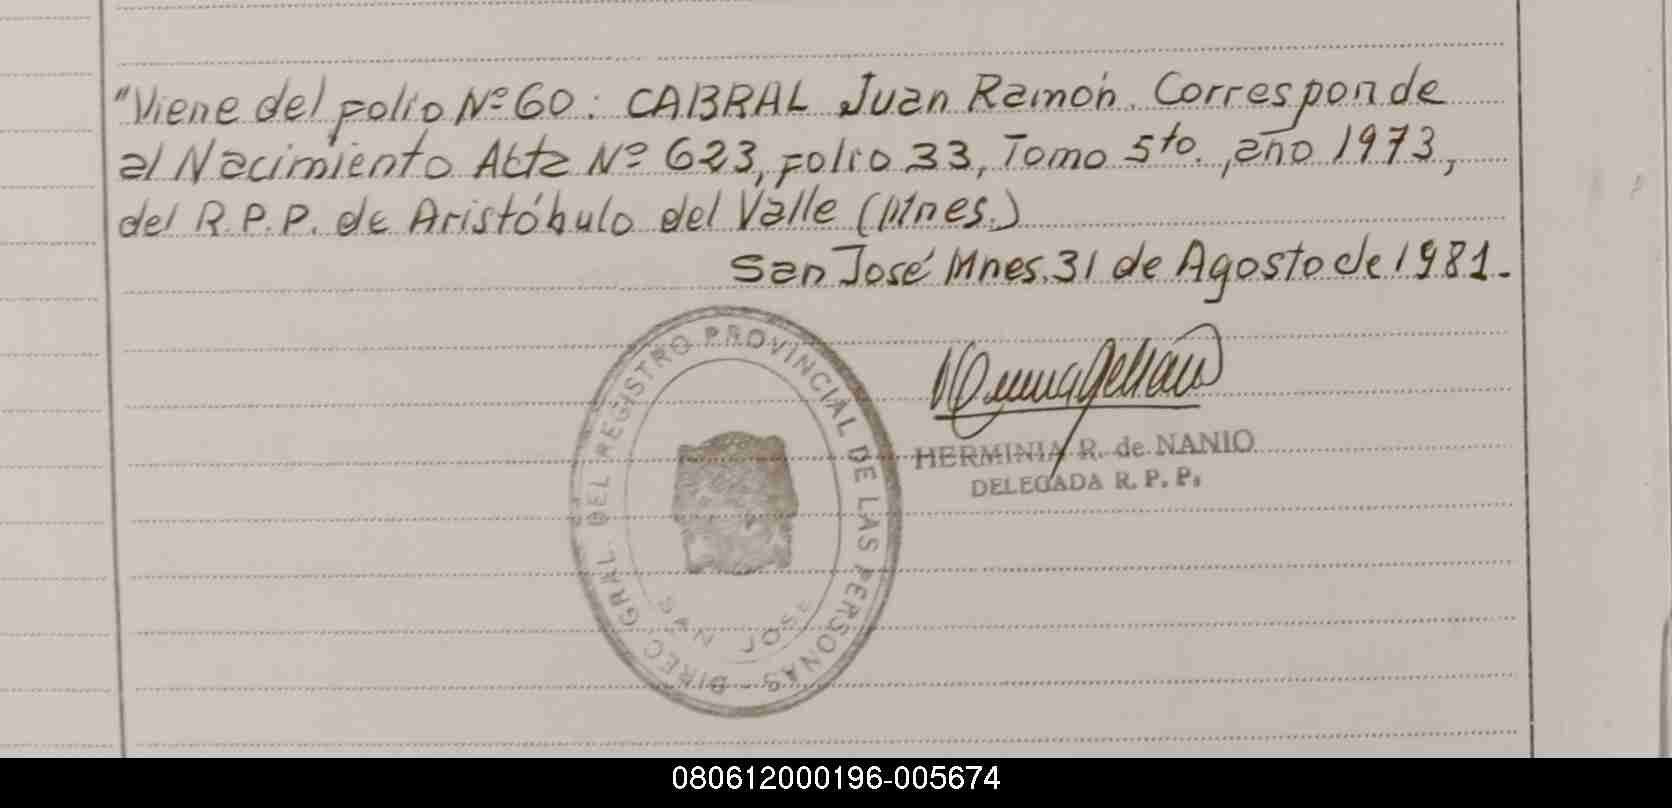 "Viene del folio Nº 60: CABRAL Juan Ramón. Corresponde
al Nacimiento Acta Nº 623, folio 33, Tomo 5to., año 1973,
del R.P.P. de Aristóbulo del Valle (Mnes.)
San José Mnes. 31 de Agosto de 1981.-
DIREC. GRAL. DEL REGISTRO PROVINCIAL DE LAS PERSONAS -
SAN JOSE
HERMINIA R. de NANIO
DELEGADA R. P. P.
080612000196-005674